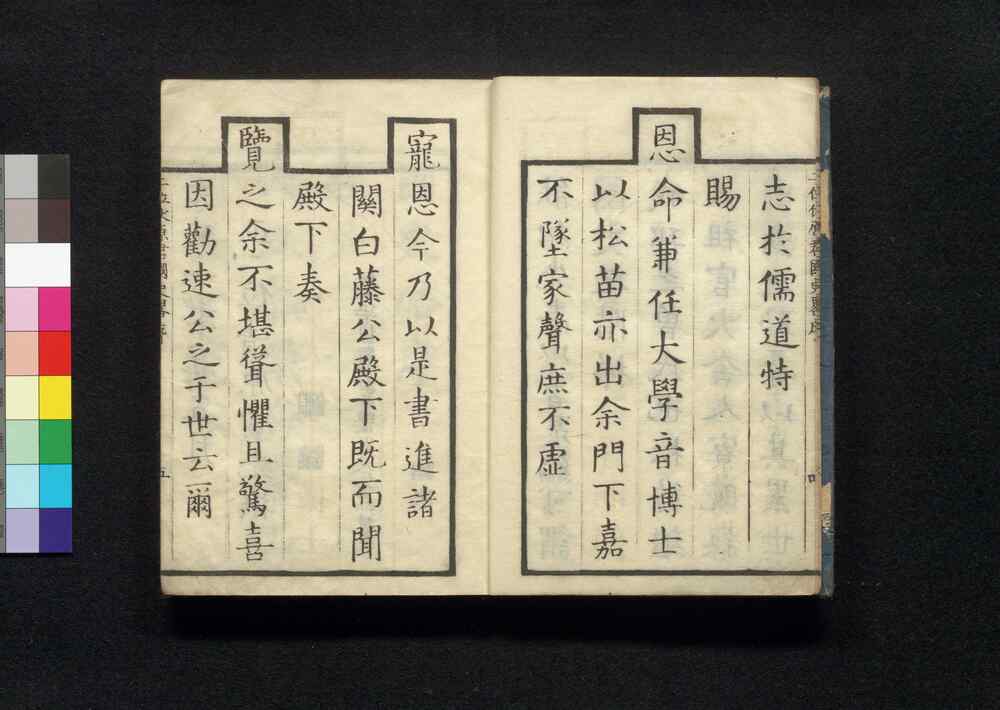 志於儒道特
賜
恩命兼任大學音博士
以松苗亦出余門下嘉
不墜家聲庶不虛
寵恩今乃以是書進諸
關白藤公殿下既而聞
殿下奏
覽之余不堪聳懼且驚喜
因勸速公之于世云爾
五